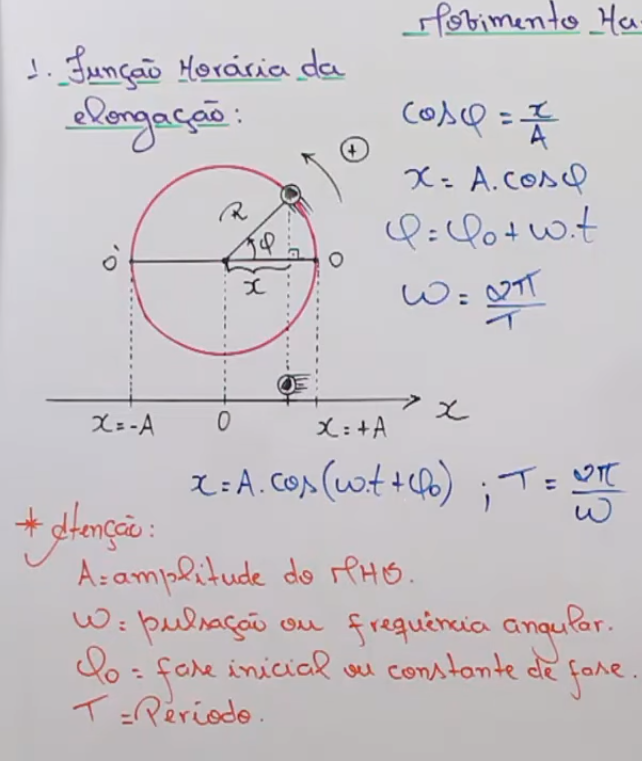 Movimento Ha
1. Função Horária da
elongação:
cosφ = x/A
x = A.cosφ
φ = φ₀ + ω.t
ω = 2π/T
+
R
φ
O'
O
x
x = -A
0
x = +A
x
x = A.cos(ω.t + φ₀) ; T = 2π/ω
* Atenção:
A = amplitude do MHS.
ω = pulsação ou frequência angular.
φ₀ = fase inicial ou constante de fase.
T = Período.